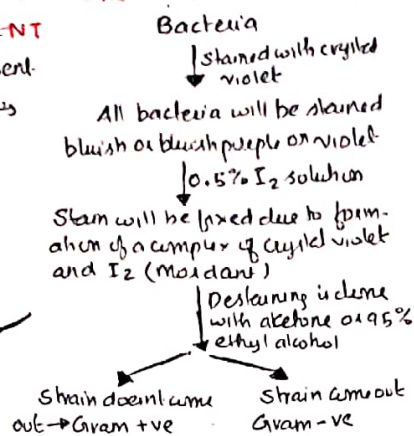 NT
Bacteria
Stained with crystal
violet
All bacteria will be stained
bluish or bluish purple or violet
0.5% I2 solution
Stain will be fixed due to form-
ation of a complex of crystal violet
and I2 (Mordant)
Destaining is done
with acetone or 95%
ethyl alcohol
Strain doesn't come
out → Gram +ve
Strain come out
Gram -ve